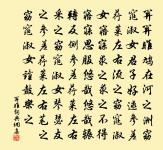 關關雎鳩在河之洲窈
窕淑女君子好逑參差
荇菜左右流之窈窕淑
女寤寐求之求之不得
寤寐思服悠哉悠哉輾
轉反側參差荇菜左右
采之窈窕淑女琴瑟友
之參差荇菜左右芼之
窈窕淑女鐘鼓樂之